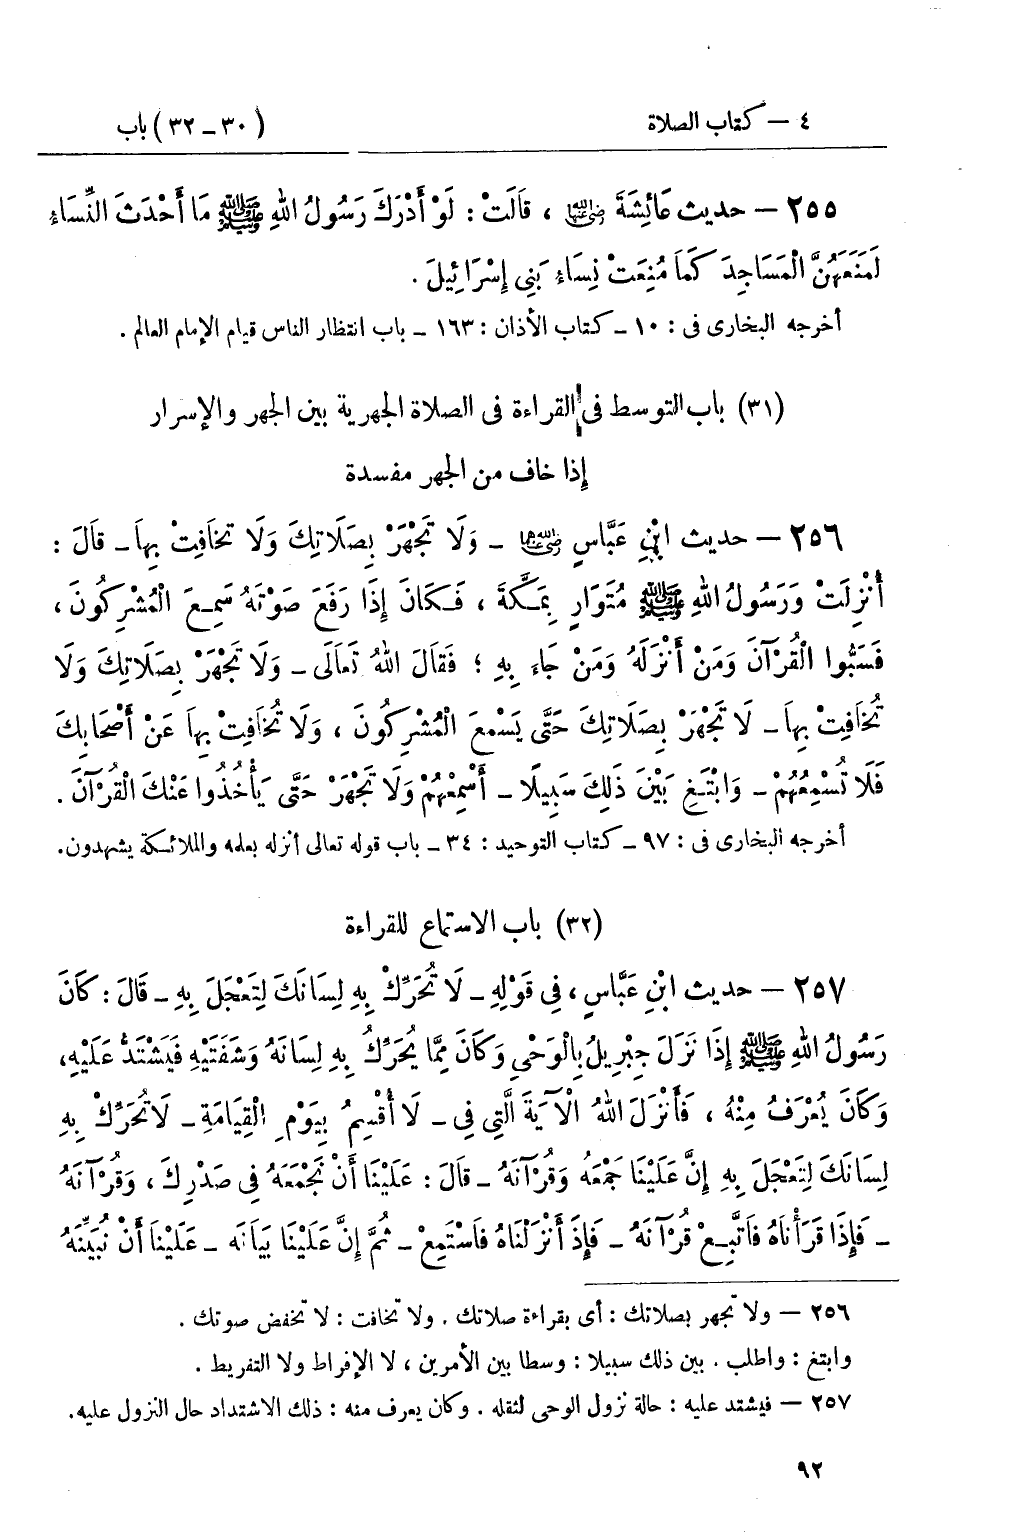 ٤ – كتاب الصلاة
(٣٠ – ٣٢) باب
٢٥٥ – حديث عَائِشَةَ رضي الله عنها ، قَالَتْ : لَوْ أَدْرَكَ رَسُولُ اللهِ ﷺ مَا أَحْدَثَ النِّسَاءُ
لَمَنَعَهُنَّ الْمَسَاجِدَ كَمَا مُنِعَتْ نِسَاءُ بَنِي إِسْرَائِيلَ .
أخرجه البخارى فى : ١٠ – كتاب الأذان : ١٦٣ – باب انتظار الناس قيام الإمام العالم .
(٣١) باب التوسط فى القراءة فى الصلاة الجهرية بين الجهر والإسرار
إذا خاف من الجهر مفسدة
٢٥٦ – حديث ابْنِ عَبَّاسٍ رضي الله عنهما – وَلَا تَجْهَرْ بِصَلَاتِكَ وَلَا تُخَافِتْ بِهَا – قَالَ :
أُنْزِلَتْ وَرَسُولُ اللهِ ﷺ مُتَوَارٍ بِمَكَّةَ ، فَكَانَ إِذَا رَفَعَ صَوْتَهُ سَمِعَ الْمُشْرِكُونَ ،
فَسَبُّوا الْقُرْآنَ وَمَنْ أَنْزَلَهُ وَمَنْ جَاءَ بِهِ ؛ فَقَالَ اللهُ تَعَالَى – وَلَا تَجْهَرْ بِصَلَاتِكَ وَلَا
تُخَافِتْ بِهَا – لَا تَجْهَرْ بِصَلَاتِكَ حَتَّى يَسْمَعَ الْمُشْرِكُونَ ، وَلَا تُخَافِتْ بِهَا عَنْ أَصْحَابِكَ
فَلَا تُسْمِعُهُمْ – وَابْتَغِ بَيْنَ ذَلِكَ سَبِيلًا – أَسْمِعْهُمْ وَلَا تَجْهَرْ حَتَّى يَأْخُذُوا عَنْكَ الْقُرْآنَ .
أخرجه البخارى فى : ٩٧ – كتاب التوحيد : ٣٤ – باب قوله تعالى أنزله بعلمه والملائكة يشهدون.
(٣٢) باب الاستماع للقراءة
٢٥٧ – حديث ابْنِ عَبَّاسٍ ، فِي قَوْلِهِ – لَا تُحَرِّكْ بِهِ لِسَانَكَ لِتَعْجَلَ بِهِ – قَالَ : كَانَ
رَسُولُ اللهِ ﷺ إِذَا نَزَلَ جِبْرِيلُ بِالْوَحْيِ وَكَانَ مِمَّا يُحَرِّكُ بِهِ لِسَانَهُ وَشَفَتَيْهِ فَيَشْتَدُّ عَلَيْهِ،
وَكَانَ يُعْرَفُ مِنْهُ ، فَأَنْزَلَ اللهُ الْآيَةَ الَّتِي فِي – لَا أُقْسِمُ بِيَوْمِ الْقِيَامَةِ – لَا تُحَرِّكْ بِهِ
لِسَانَكَ لِتَعْجَلَ بِهِ إِنَّ عَلَيْنَا جَمْعَهُ وَقُرْآنَهُ – قَالَ : عَلَيْنَا أَنْ نَجْمَعَهُ فِي صَدْرِكَ ، وَقُرْآنَهُ
– فَإِذَا قَرَأْنَاهُ فَاتَّبِعْ قُرْآنَهُ – فَإِذَا أَنْزَلْنَاهُ فَاسْتَمِعْ – ثُمَّ إِنَّ عَلَيْنَا بَيَانَهُ – عَلَيْنَا أَنْ نُبَيِّنَهُ
٢٥٦ – ولا تجهر بصلاتك : أى بقراءة صلاتك . ولا تخافت : لا تخفض صوتك .
وابتغ : واطلب . بين ذلك سبيلا : وسطا بين الأمرين ، لا الإفراط ولا التفريط .
٢٥٧ – فيشتد عليه : حالة نزول الوحى لثقله . وكان يعرف منه : ذلك الاشتداد حال النزول عليه.
٩٢